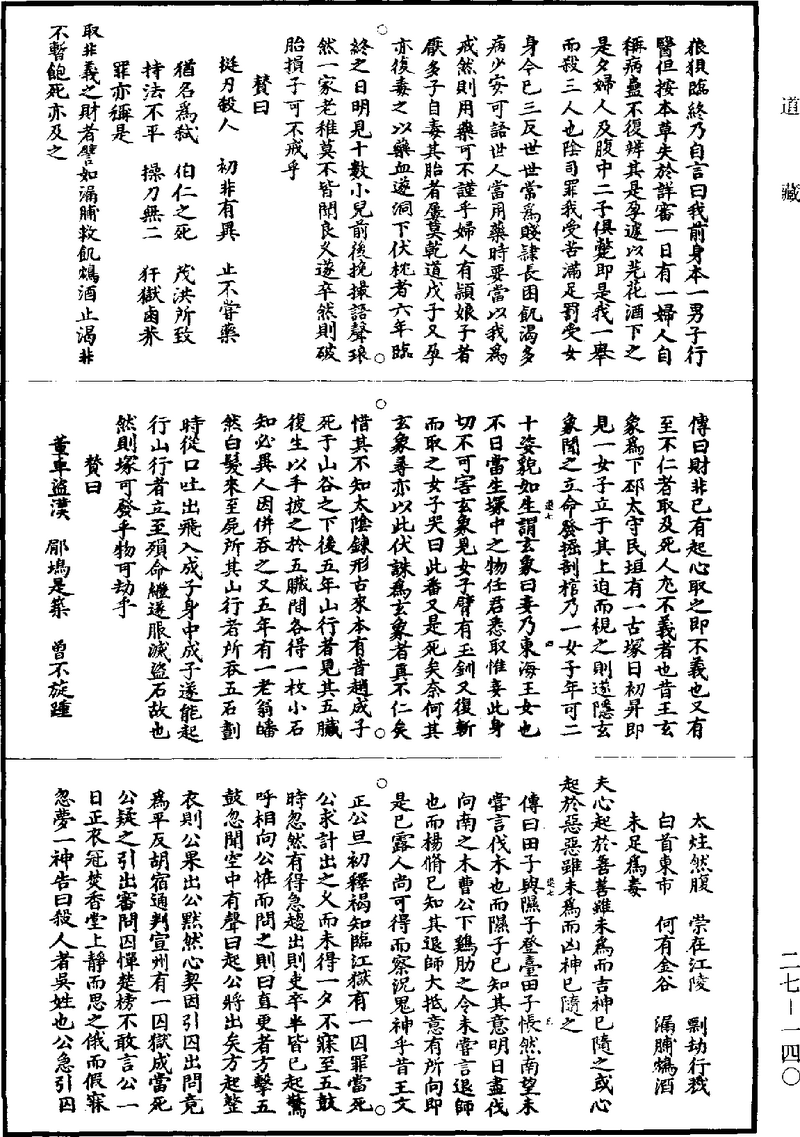 道藏
狼狽臨終乃自言曰我前身本一男子行
醫但按本草失於詳審一日有一婦人自
稱病蠱不復辨其是孕遽以芫花酒下之
是夕婦人及腹中二子俱斃即是我一舉
而殺三人也陰司罪我受苦滿足罰受女
身今已三反世世常為賤隸長困飢渴多
病少安可語世人當用藥時要當以我為
戒然則用藥可不謹乎婦人有頴娘子者
厭多子自毒其胎者屢莫乾道戊子又孕
亦復毒之以藥血遂洞下伏枕者六年臨
終之日明見十數小兒前後挽撮語聲琅
然一家老稚莫不皆聞良乂遂卒然則破
胎損子可不戒乎
贊曰
挺刃殺人　初非有異　止不嘗藥
猶名為弒　伯仁之死　茂洪所致
持法不平　操刀無二　犴獄鹵莽
罪亦稱是
取非義之財者譬如漏脯救飢鴆酒止渴非
不暫飽死亦及之
傳曰財非已有起心取之即不義也又有
至不仁者取及死人尤不義者也昔王玄
象為下邳太守民垣有一古塚日初昇即
見一女子立于其上迫而視之則遂隱玄
象聞之立命發掘剖棺乃一女子年可二
十姿貌如生謂玄象曰妾乃東海王女也
不日當生塚中之物任君悉取惟妾此身
切不可害玄象見女子臂有玉釧又復斬
而取之女子哭曰此番又是死矣奈何其
玄象尋亦以此伏誅為玄象者真不仁矣
惜其不知太陰鍊形古來本有昔趙成子
死于山谷之下後五年山行者見其五臟
復生以手披之於五臟間各得一枚小石
知必異人因併吞之又五年有一老翁皤
然白髮來至屍所其山行者所吞五石劃
時從口吐出飛入成子身中成子遂能起
行山行者立至殞命繼遂服滅盜石故也
然則塚可發乎物可劫乎
贊曰
董車盜漢　郿塢是築　曾不旋踵
太炷然腹　崇在江陵　剽劫行戮
白首東市　何有金谷　漏脯鴆酒
未足為毒
夫心起於善善雖未為而吉神已隨之或心
起於惡惡雖未為而凶神已隨之
傳曰田子與隰子登臺田子悵然南望未
嘗言伐木也而隰子已知其意明日盡伐
向南之木曹公下鷄肋之令未嘗言退師
也而楊脩已知其退師大抵意有所向即
是已露人尚可得而察況鬼神乎昔王文
正公旦初釋褐知臨江獄有一囚罪當死
公求計出之乂而未得一夕不寐至五鼓
時忽然有得急趨出則吏卒半皆已起驚
呼相向公恠而問之則曰直更者方擊五
鼓忽聞空中有聲曰起公將出矣方起整
衣則公果出公默然心契因引囚出問竟
為平反胡宿通判宣州有一囚獄成當死
公疑之引出審問囚憚楚榜不敢言公一
日正衣冠焚香堂上靜而思之俄而假寐
忽夢一神告曰殺人者吳姓也公急引囚
二七－一四〇